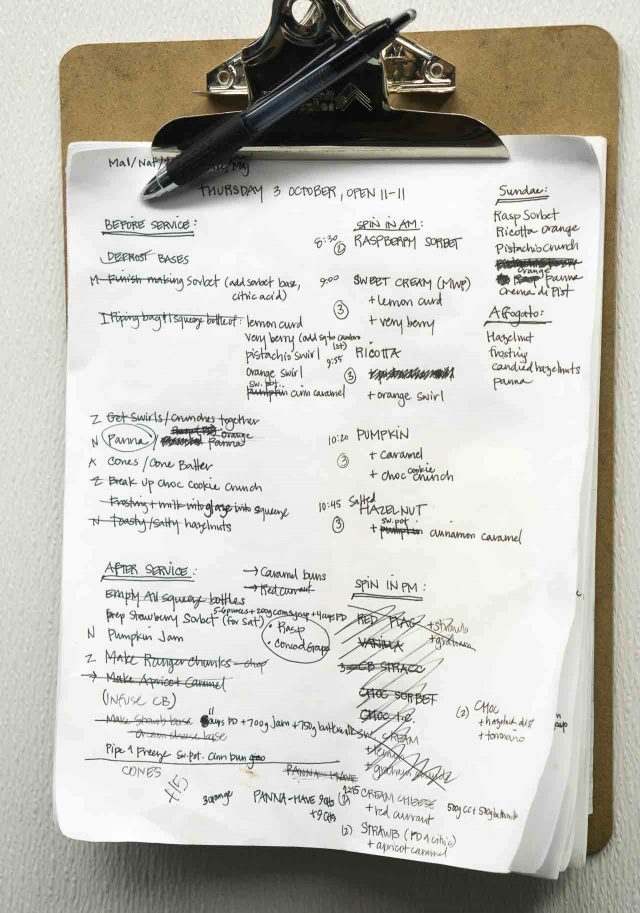 Mal/Naf/
THURSDAY 3 OCTOBER, OPEN 11-11
BEFORE SERVICE:
DEFROST BASES
M Finish making Sorbet (add sorbet base,
citric acid)
Piping bag + squeeze bottle of: lemon curd
very berry
pistachio swirl
orange swirl
sw. pot.
pumpkin cinn caramel
Z Get Swirls/Crunches together
orange
N Panna / Panna
A Cones / Cone Batter
Z Break up choc cookie crunch
Frosting + milk into glaze into squeeze
N Toasty/salty hazelnuts
SPIN IN AM:
8:30 (2) RASPBERRY SORBET
9:00 SWEET CREAM (MWP)
(3) + lemon curd
+ very berry
9:55 RICOTTA
(3)
+ orange swirl
10:20 PUMPKIN
(3) + caramel
+ choc cookie crunch
10:45 Salted
HAZELNUT
(3) sw. pot
+ pumpkin cinnamon caramel
Sundae:
Rasp Sorbet
Ricotta orange
Pistachio crunch
orange
panna
Crema di Pist
Affogato:
Hazelnut
frosting
candied hazelnuts
panna
AFTER SERVICE:
→ Caramel buns
→ Red currant
Empty All squeeze bottles
prep Strawberry Sorbet (for Sat)
• Rasp
• Concord Grape
N Pumpkin Jam
Z Make Ranger chunks - chop
→ Make Apricot Caramel
(INFUSE CB)
Make Strawb base cups PD + 700g Jam + 750g buttermilk
Cream cheese base
Pipe + Freeze Sw. Pot. Cinn bun goo
CONES
PANNA-HAVE
3 orange PANNA-HAVE 9 qts (2)
+ 9 qts
SPIN IN PM:
RED FLAG + strawb
+ graham
VANILLA
3 CB STRACC
CHOC SORBET
CHOC I.C.
SW CREAM
+ lemon
+ graham
(2) CHOC
+ hazelnut dist
+ torroncino
12:15 CREAM CHEESE 500g CC + 500g buttermilk
+ red currant
(2) STRAWB (PD + citric)
+ apricot caramel